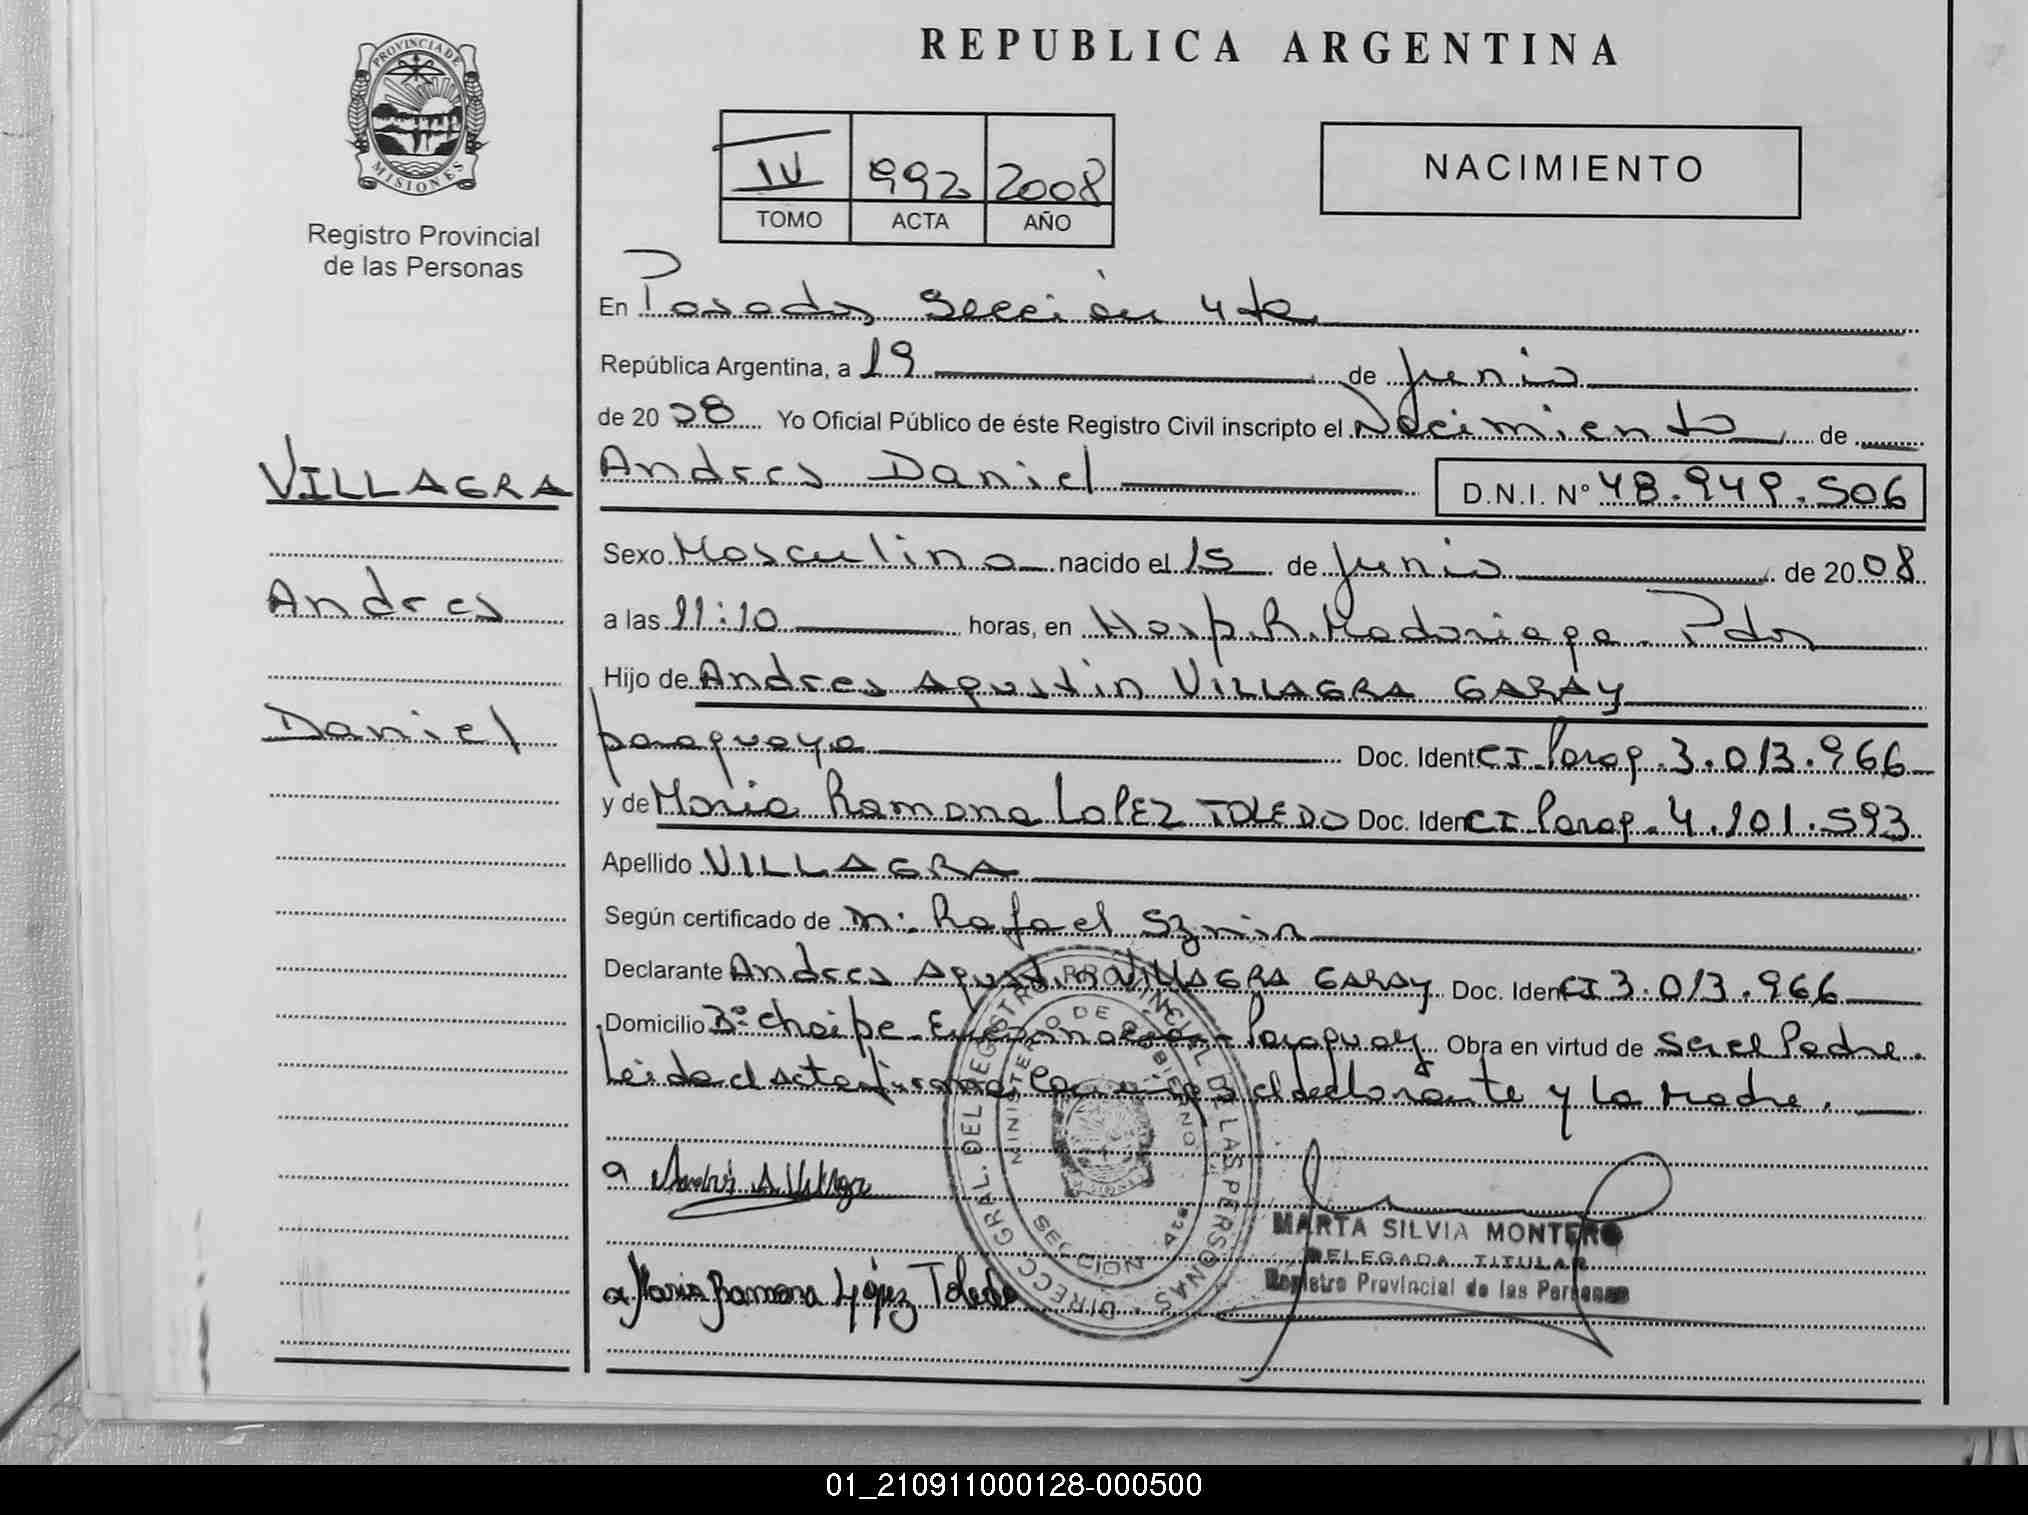 REPUBLICA ARGENTINA
PROVINCIA DE MISIONES
Registro Provincial
de las Personas
IV 992 2008
TOMO ACTA AÑO
NACIMIENTO
En Posadas Sección 4ta
República Argentina, a 19 de junio
de 2008 Yo Oficial Público de éste Registro Civil inscripto el Nacimiento de
VILLAGRA
Andres
Daniel
Andres Daniel D.N.I. N° 48.949.506
Sexo Masculino nacido el 15 de junio de 2008
a las 11:10 horas, en Hosp. R. Madariaga - Pdas
Hijo de Andres Agustin VILLAGRA GARAY
paraguaya Doc. Ident CI Parag. 3.013.966
y de Maria Ramona LOPEZ TOLEDO Doc. Ident CI Parag. 4.101.593
Apellido VILLAGRA
Según certificado de Rafael
Declarante Andres Agustin VILLAGRA GARAY Doc. Ident CI 3.013.966
Domicilio B° Chaipe - Encarnacion - Paraguay Obra en virtud de ser el Padre.
Leida el acta firman conmigo el declarante y la Madre.
DIRECC. GRAL. DEL REGISTRO PROVINCIAL DE LAS PERSONAS
MINISTERIO DE GOBIERNO
SECCION 4ta
Andrés A. Villagra
Maria Ramona López Toledo
MARTA SILVIA MONTERO
DELEGADA TITULAR
Registro Provincial de las Personas
01_210911000128-000500